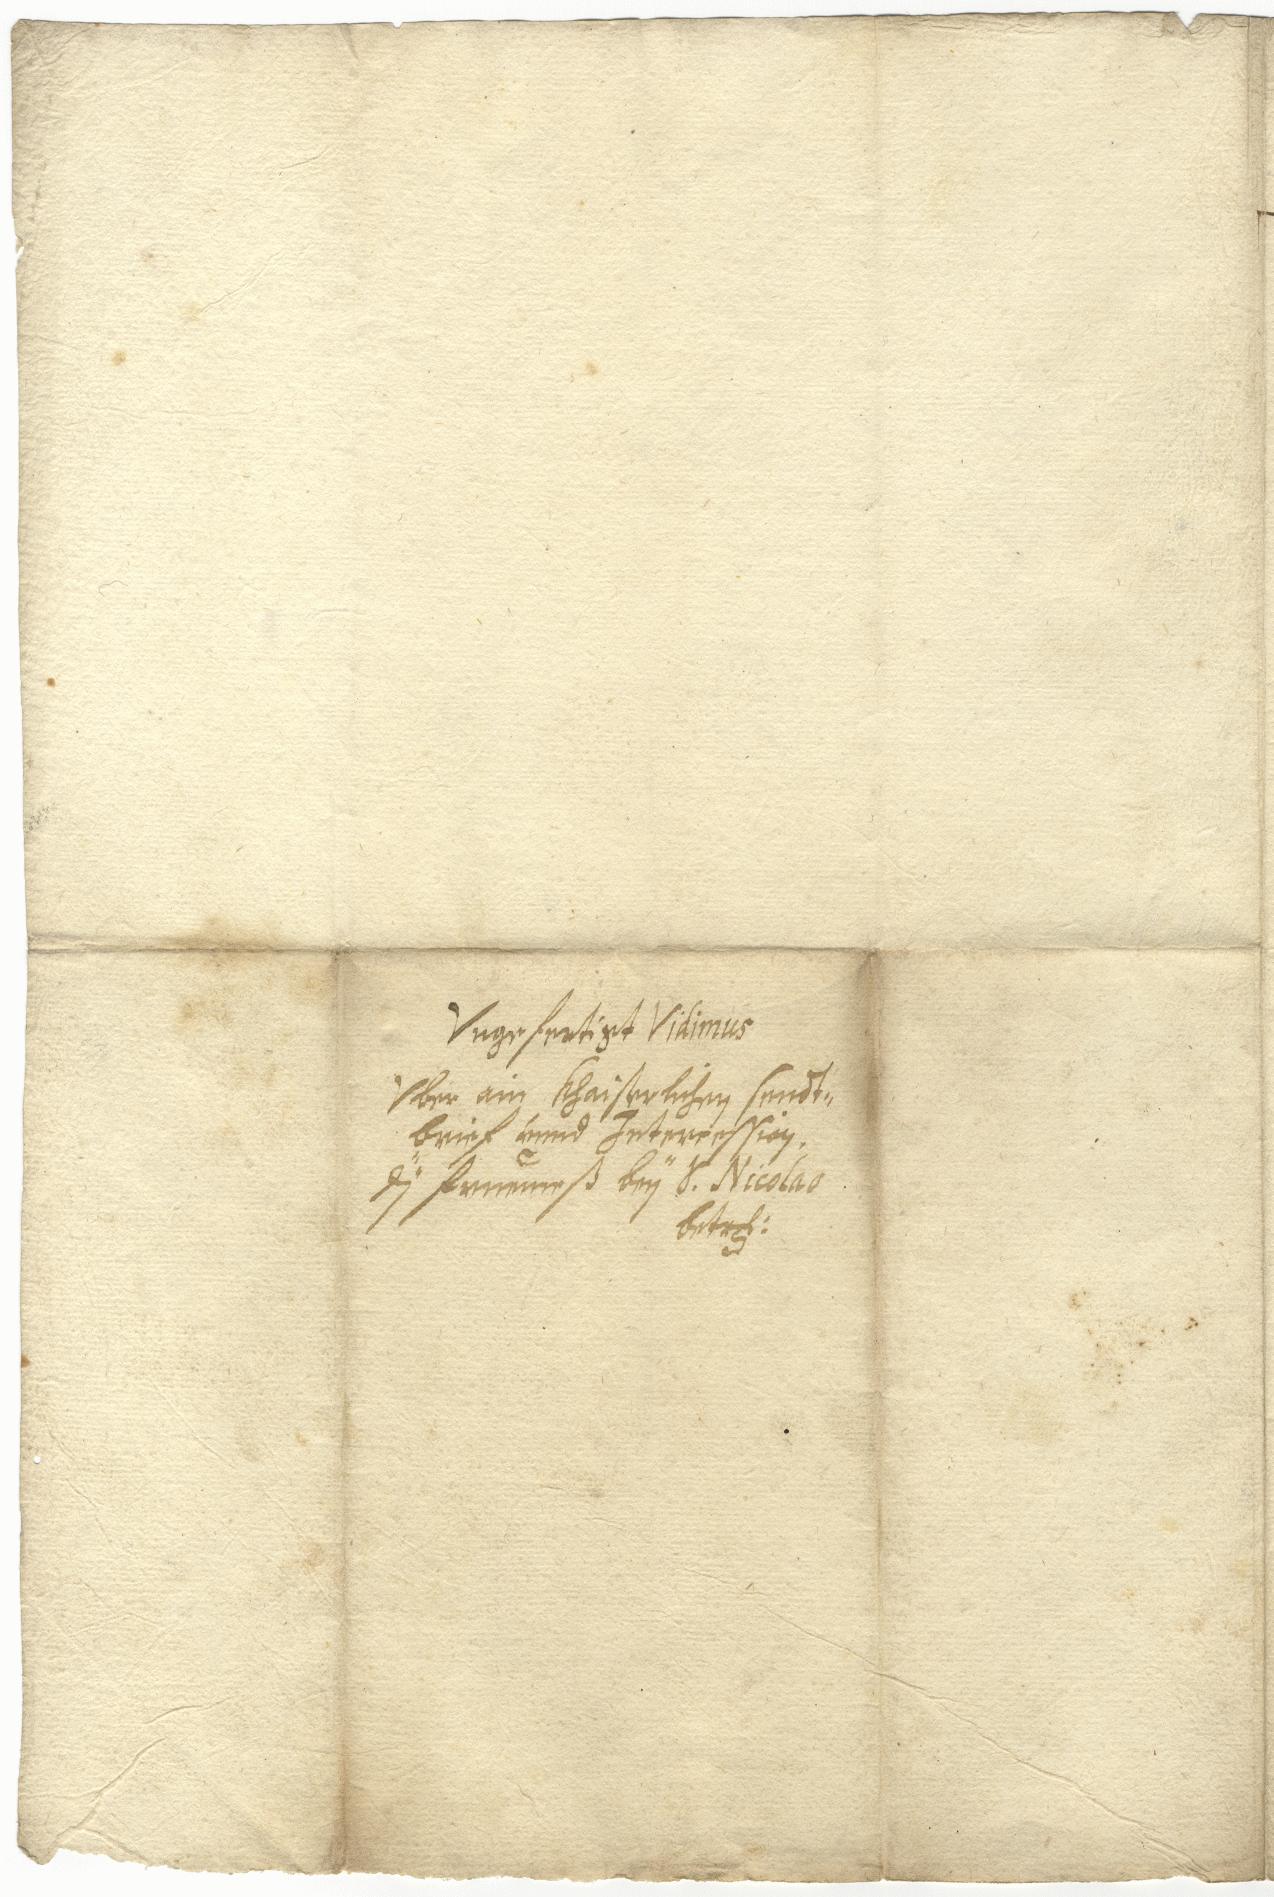 Vngefertigt Vidimus
Vber ain Khaiserlichen sendt-
brief vnnd Intercession,
dÿ Fruemeß beÿ S. Nicolao
betr: